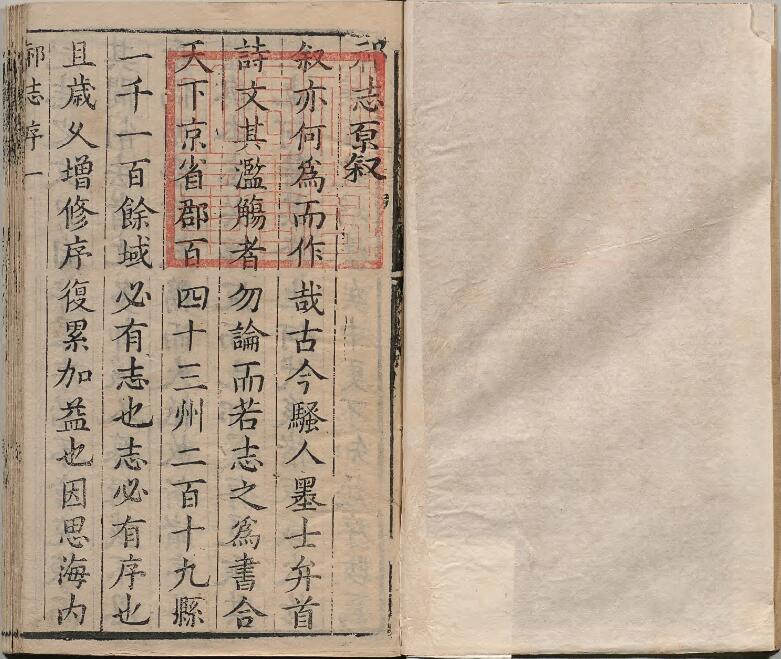 祁志原叙
叙亦何爲而作哉古今騷人墨士弁首
詩文其濫觴者勿論而若志之爲書合
天下京省郡百四十三州二百十九縣
一千一百餘域必有志也志必有序也
且歲久增修序復累加益也因思海内
祁志序一